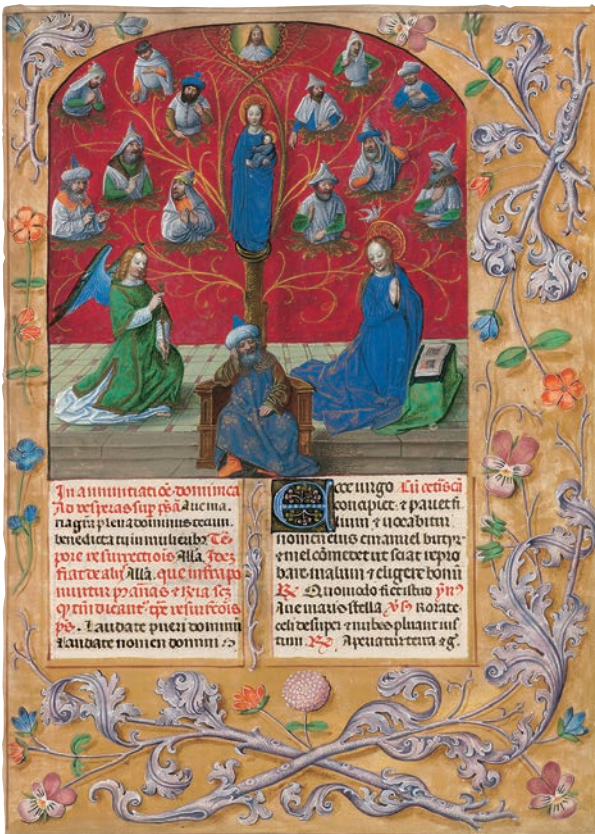 In annuntiatiōe dominica
Ad vesperas sup psā Aue ma
ria gr̄a plena dominus tecum
benedicta tu in mulieribꝫ Tē
pore resurrectiōis Alla. Itē
fiat de alijs Alla. que infra po
nuntur p anās
resurrectōis
ps. Laudate pueri dominū
Laudate nomen domini
Ecce uirgo
concipiet ⁊ pariet fi
lium ⁊ uocabitur
nomen eius emanuel butyr̄
⁊ mel cōmedet ut sciat repro
bare malum ⁊ eligere bonū
R̷ Quomodo fiet istud ymꝰ
Aue maris stella V̷s Rorate
celi desuper ⁊ nubes pluant ius
tum R̷ Aperiatur terra ⁊ g.